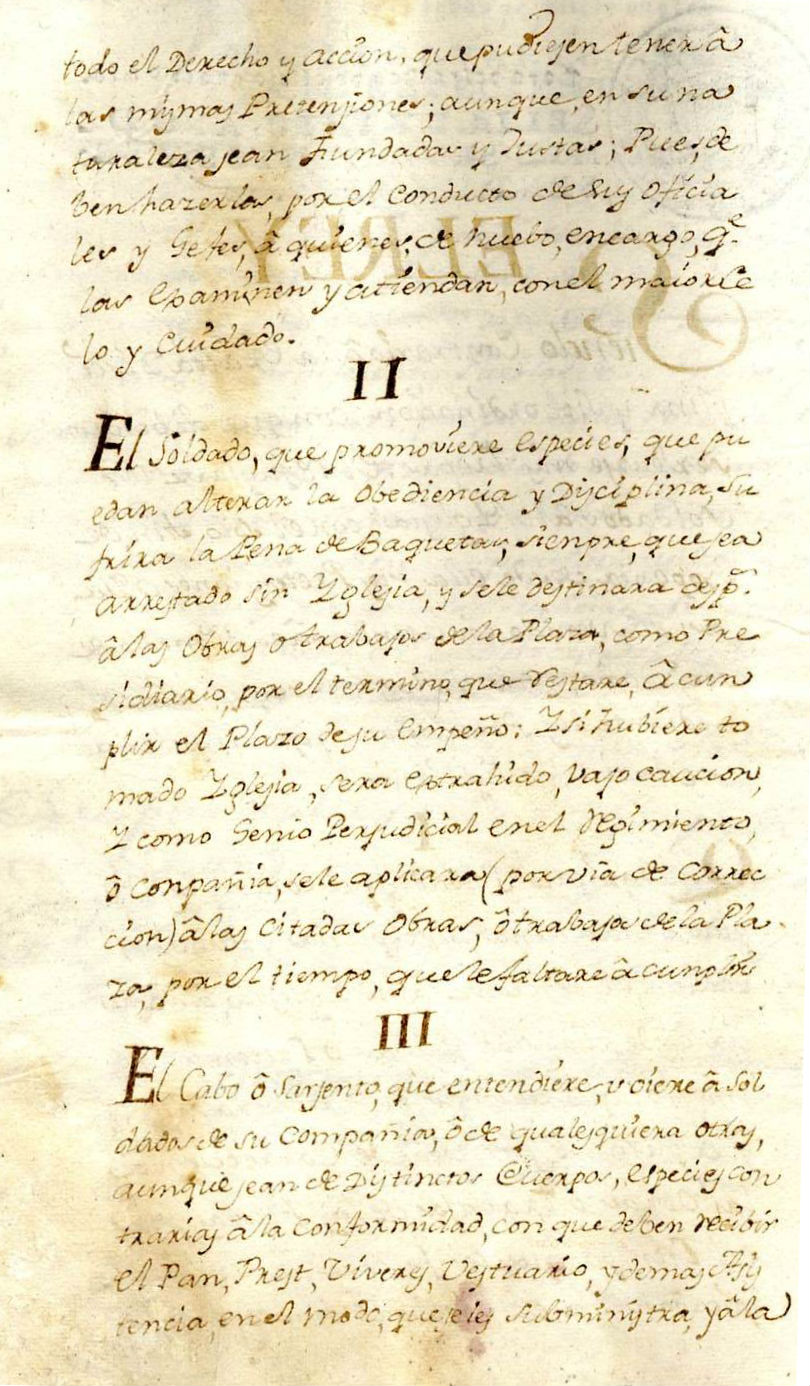 todo el Derecho y accion, que pudiesen tener â
las mismas Pretensiones; aunque, en su na
turaleza sean Fundadas y Justas; Pues, de
ben hazerlas, por el Conducto de sus Oficia
les y Gefes, â quienes, de nuebo, encargo, q.e
las Examinen y atiendan, con el maior Ce
lo y Cuidado.
II
El Soldado, que promoviere especies, que pu
edan alterar la Obediencia y Disciplina, su
frira la Pena de Baquetas, sienpre, que sea
arrestado sin Yglesia, y se le destinara desp.s
â las Obras o trabajos de la Plaza, como Pre
sidiario, por el termino, que restare, â cun
plir el Plazo de su Empeño: Y si hubiere to
mado Yglesia, sera extrahido, vajo caucion,
Y como Genio Perjudicial en el Regimiento,
ô Conpañia, se le aplicara (por via de Correc
cion) â las Citadas Obras, ô trabajos de la Pla
za, por el tiempo, que le faltare â cunplir
III
El Cabo ô Sarjento, que entendiere, u oiere â Sol
dados de su Compañia, ô de qualesquiera otras,
aunque sean de Distinctos Cuerpos, especies con
trarias â la Conformidad, con que deben recibir
el Pan, Prest, Viveres, Vestuario, y demas Asis
tencia, en el modo, que se les subministra, y â la
EL REY